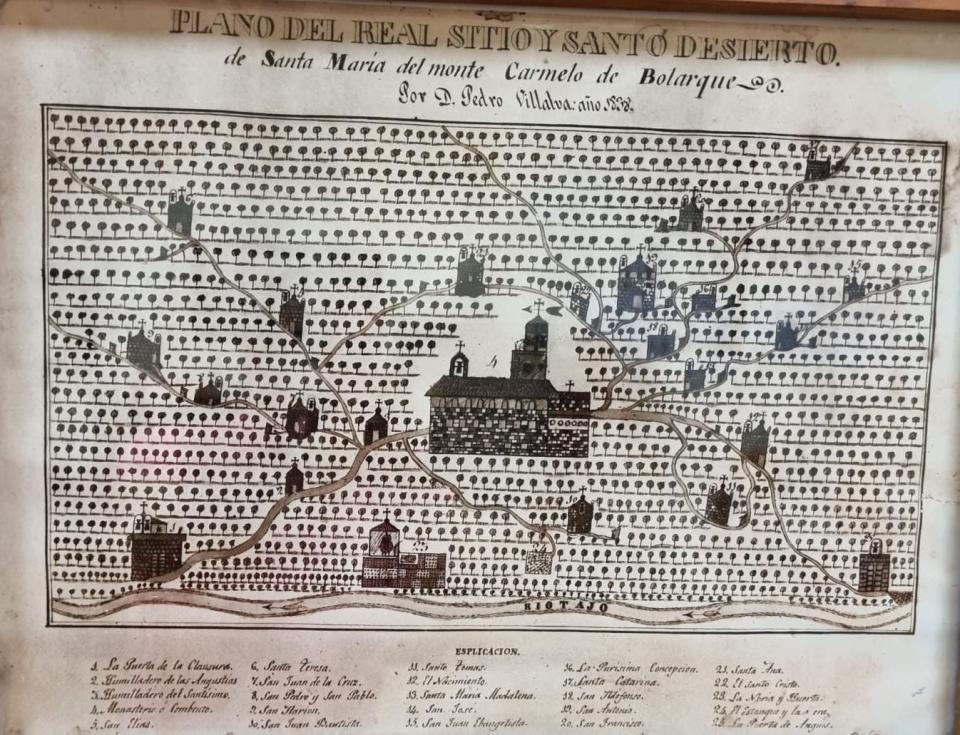 PLANO DEL REAL SITIO Y SANTO DESIERTO.
de Santa María del monte Carmelo de Bolarque
Por D. Pedro Villalva: año 1838.
4
RIO TAJO
ESPLICACION.
1. La Puerta de la Clausura.
2. Humilladero de las Angustias
3. Humilladero del Santísimo.
4. Monasterio ó Combento.
5. San Elias.
6. Santa Teresa.
7. San Juan de la Cruz.
8. San Pedro y San Pablo.
9. San Ilarion.
10. San Juan Bautista.
11. Santo Tomas.
12. El Nacimiento.
13. Santa María Madalena.
14. San José.
15. San Juan Ebangelista.
16. La Purisima Concepcion.
17. Santa Catarina.
18. San Ildefonso.
19. San Antonio.
20. San Francisco.
21. Santa Ana.
22. El Santo Cristo.
23. La Noria y Huerta.
24. El Estanque y la era.
25. La Puerta de